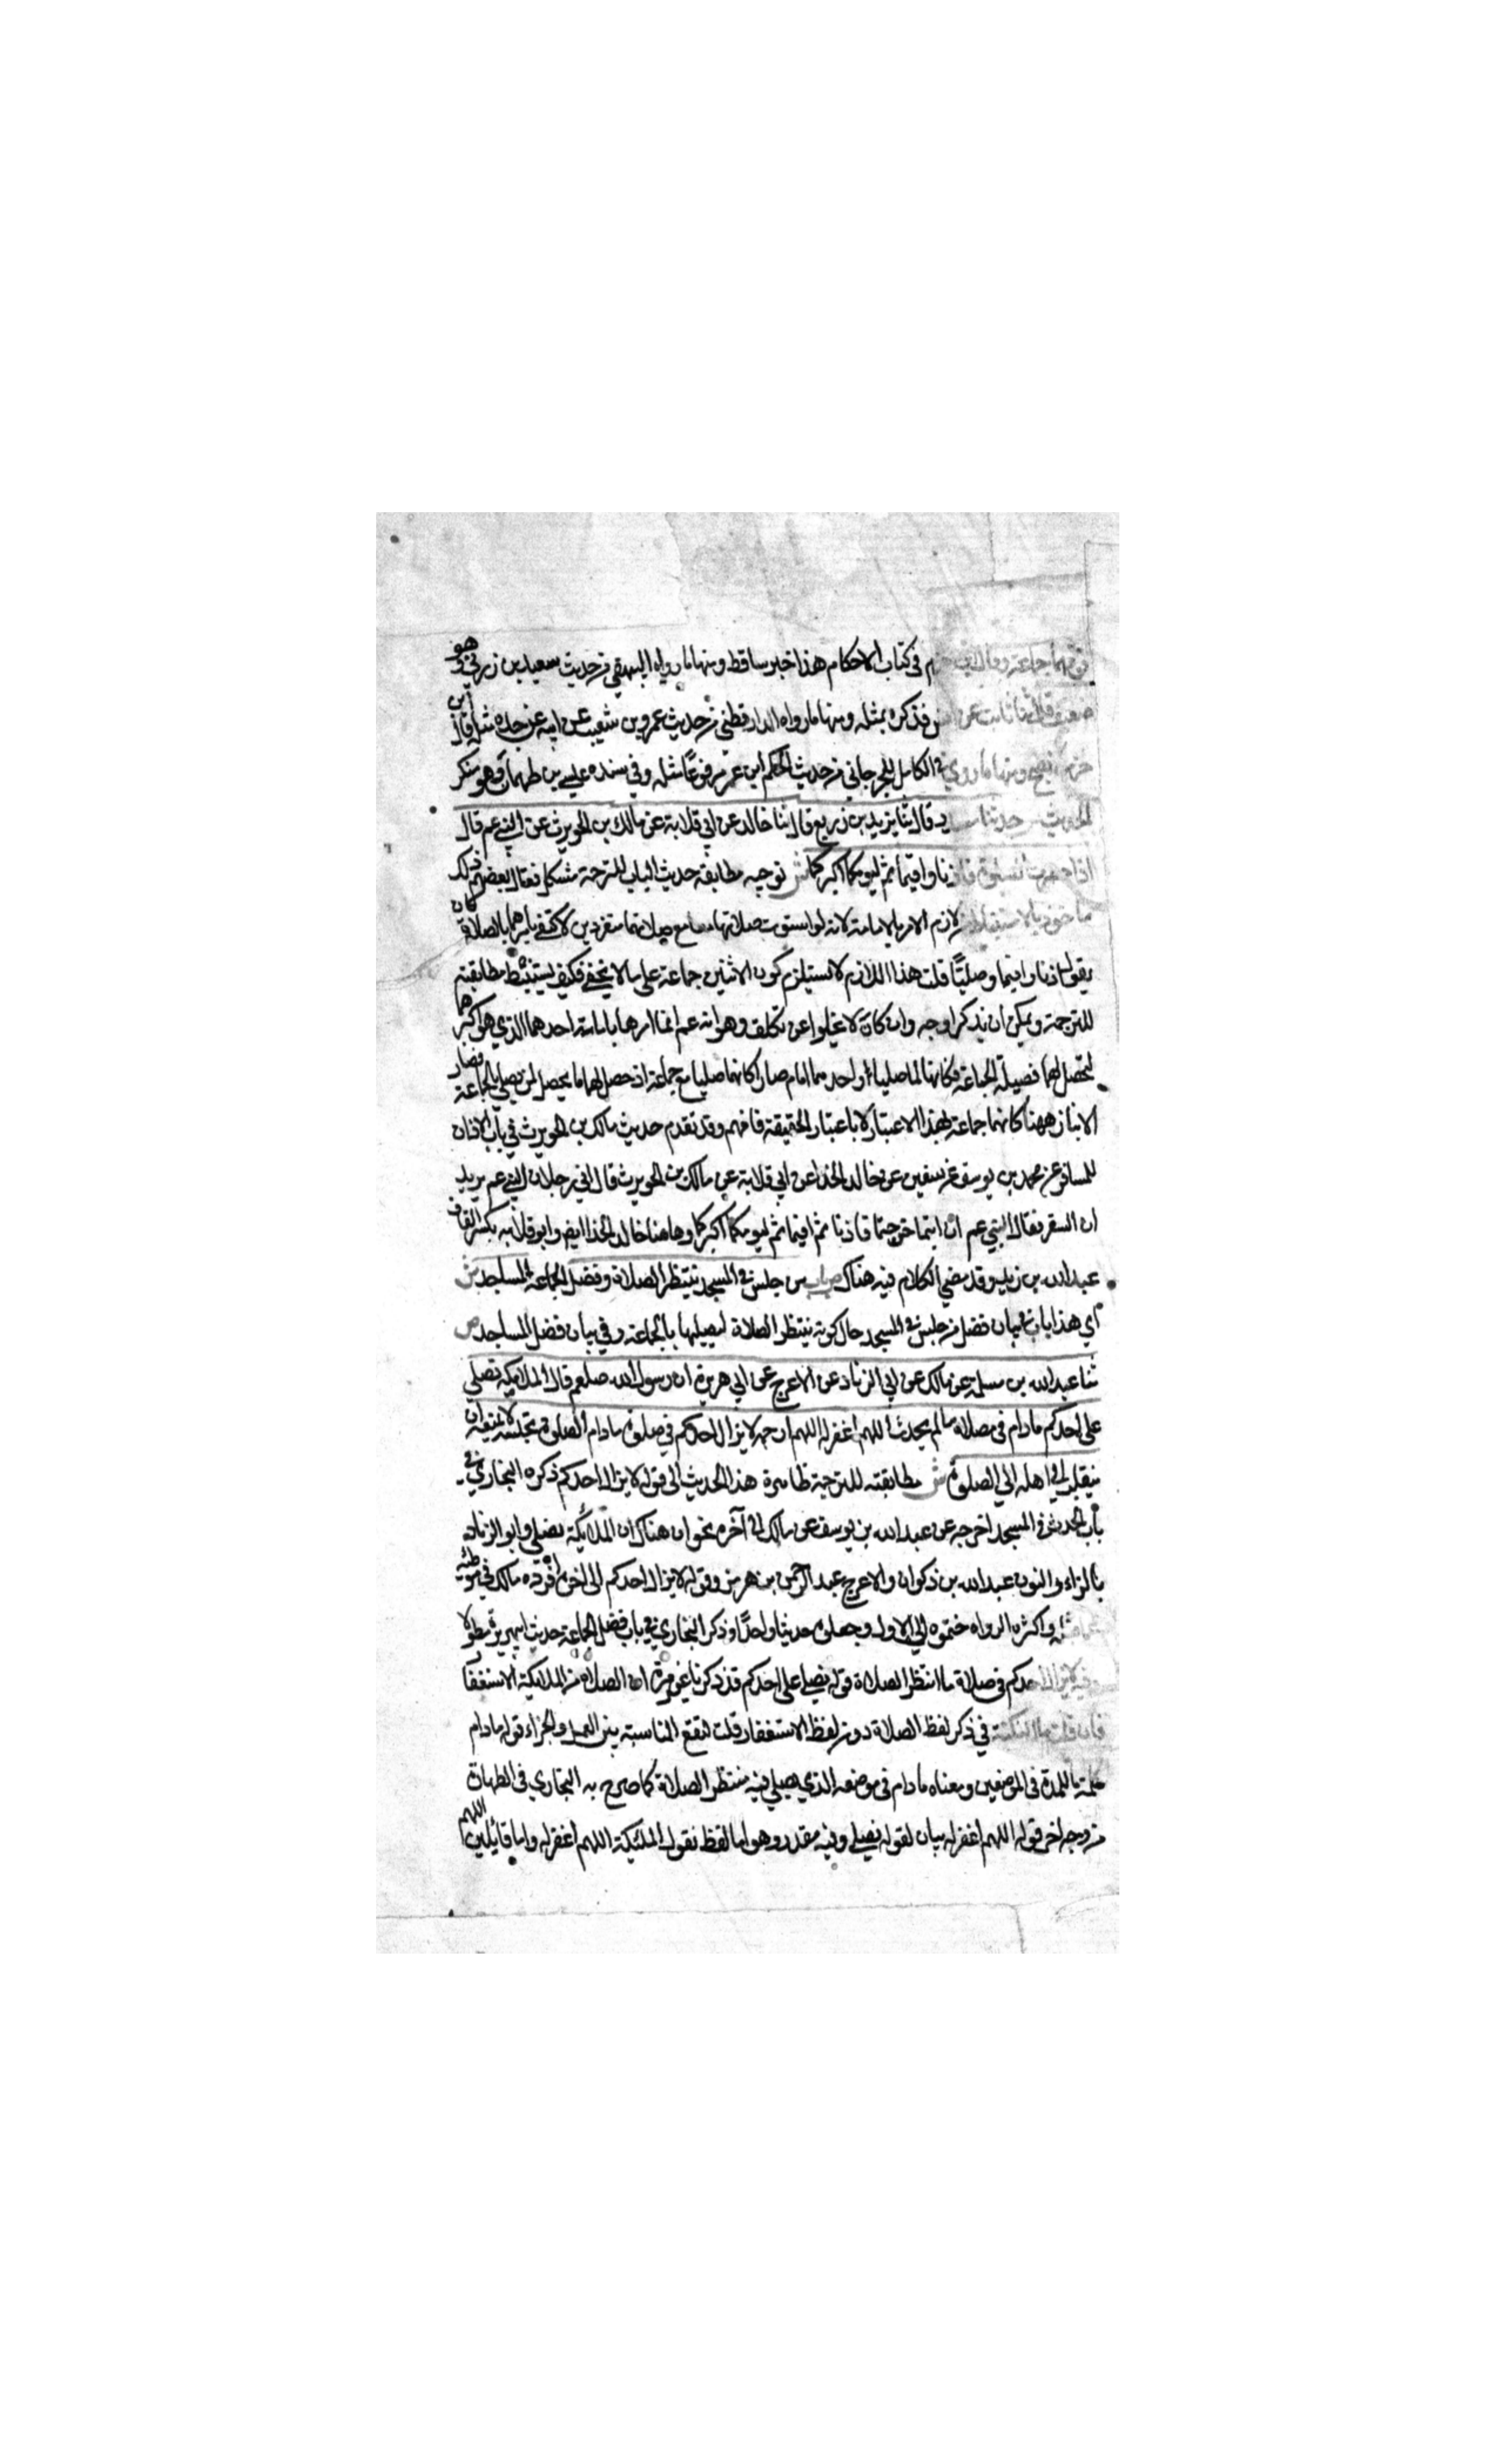 فوقهما جماعة وقال ابن حزم في كتاب الاحكام هذا خبر ساقط ومنها ما رواه البيهقي من حديث سعيد بن زربي وهو
ضعيف قال ثنا ثابت عن انس فذكره بمثله ومنها ما رواه الدارقطني من حديث عمرو بن شعيب عن ابيه عن جده مثله قال ابن
حزم لا يصح ومنها ما روي في الكامل للجرجاني من حديث الحكم ابن عمير مرفوعًا مثله وفي سنده عيسى بن طهمان وهو منكر
الحديث حدثنا مسدد قال ثنا يزيد بن زريع قال ثنا خالد عن ابي قلابة عن مالك بن الحويرث عن النبي عم قال
اذا حضرت الصلوة فاذنا واقيما ثم ليومكما اكبركما ش توجيه مطابقة حديث الباب للترجمة مشكل فقال بعضهم ذلك
ماخوذ بالاستنباط من لازم الامر بالامامة لانه لو استوت صلاتهما معا مع صلاتهما منفردين لاكتفى بامرهما بالصلاة كان
يقول اذنا واقيما وصليًا قلت هذا اللازم لا يستلزم كون الاثنين جماعة على ما لا يخفى فكيف يستنبط مطابقته
للترجمة ويمكن ان يذكر اوجه وان كان لا يخلوا عن تكلف وهو انه عم انما امرها بامامة احدهما الذي هو اكبرهما
لتحصل لهما فضيلة الجماعة فكانهما لما صليا واحدهما امام صارا كانهما صليا مع جماعة اذ حصل لهما ما يحصل لمن يصلي بالجماعة فصار
الاثنان ههنا كانهما جماعة بهذا الاعتبار لا باعتبار الحقيقة فافهم وقد تقدم حديث مالك بن الحويرث في باب الاذان
للمسافر عن محمد بن يوسف عن سفين عن خالد الحذا عن ابي قلابة عن مالك بن الحويرث قال اتى رجلان النبي عم يريد
ان السفر فقال النبي عم اذا انتما خرجتما فاذنا ثم اقيما ثم ليومكما اكبركما وهاهنا خالد الحذا ايضا وابو قلابه بكسر القاف
عبد الله بن زيد وقد مضى الكلام فيه هناك ص باب من جلس في المسجد ينتظر الصلاة وفضل الجماعة المساجد ش
اي هذا باب في بيان فضل من جلس في المسجد حال كونه ينتظر الصلاة ليصليها بالجماعة وفي بيان فضل المساجد ص
ثنا عبد الله بن مسلمة عن مالك عن ابي الزناد عن الاعرج عن ابي هريرة ان رسول الله صلعم قال الملايكة تصلي
على احدكم مادام في مصلاه ما لم يحدث اللهم اغفر له اللهم ارحمه لا يزال احدكم في صلوة مادام الصلوة تحبسه لا يمنعه ان
ينقلب الى اهله الى الصلوة ش مطابقته للترجمة ظاهرة هذا الحديث الى قوله لا يزال احدكم ذكره البخاري في
باب الحدث في المسجد اخرجه عن عبد الله بن يوسف عن مالك الى آخره نحو ان هناك ان الملائكة تصلي وابو الزناد
بالزاء والنون عبد الله بن ذكوان والاعرج عبد الرحمن بن هرمز وقوله لا يزال احدكم الى اخره افرده مالك في موطئه
عما قبله واكثر الرواه ضموه الى الاول وجعلوه حديثا واحدًا وذكر البخاري في باب فضل الجماعة حديث ابي هريرة مطولا
وفيه لا يزال احدكم في صلاة ما انتظر الصلاة قوله تصلي على احدكم قد ذكرنا غير مرة ان الصلاه من الملايكة الاستغفا
فان قلت ما النكتة في ذكر لفظ الصلاة دون لفظ الاستغفار قلت لتقع المناسبة بين العمل والجزاء قوله مادام
كلمة ما للمدة في الموضعين ومعناه ما دام في موضعه الذي يصلي فيه منتظر الصلاة كما صرح به البخاري في الطهارة
من وجه اخر قوله اللهم اغفر له بيان لقوله تصلي وفيه مقدر وهو اما لفظ تقول الملئكة اللهم اغفر له واما قائلين اللهم